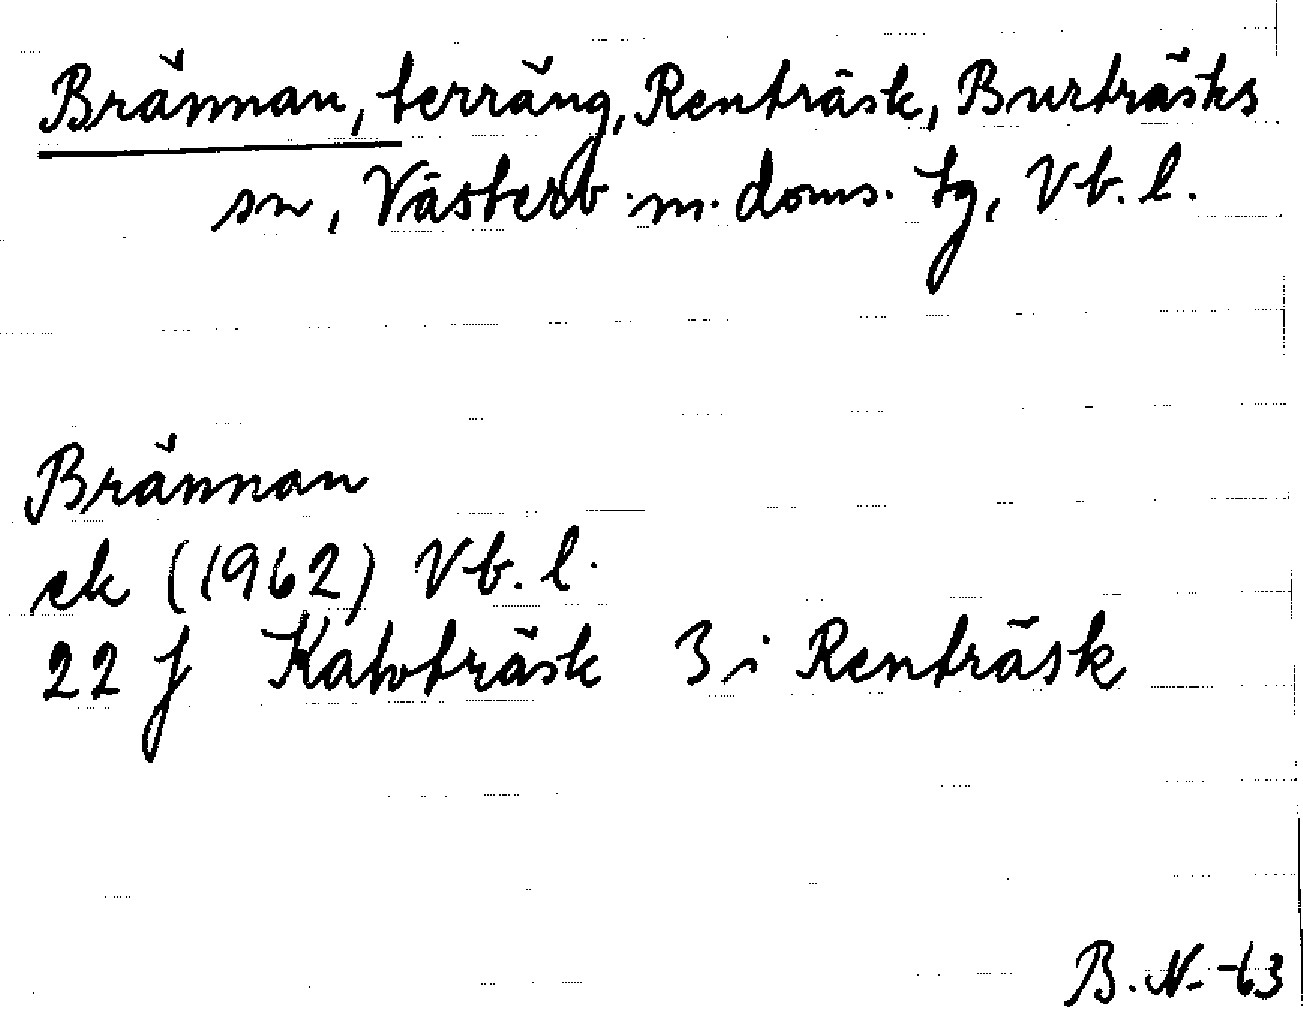 Brännan, terräng, Renträsk, Burträsks
sn, Västerb. m. doms. tg, Vb. l.
Brännan
ek (1962) Vb. l.
22 J Kalvträsk 3 i Renträsk
B. N. -63